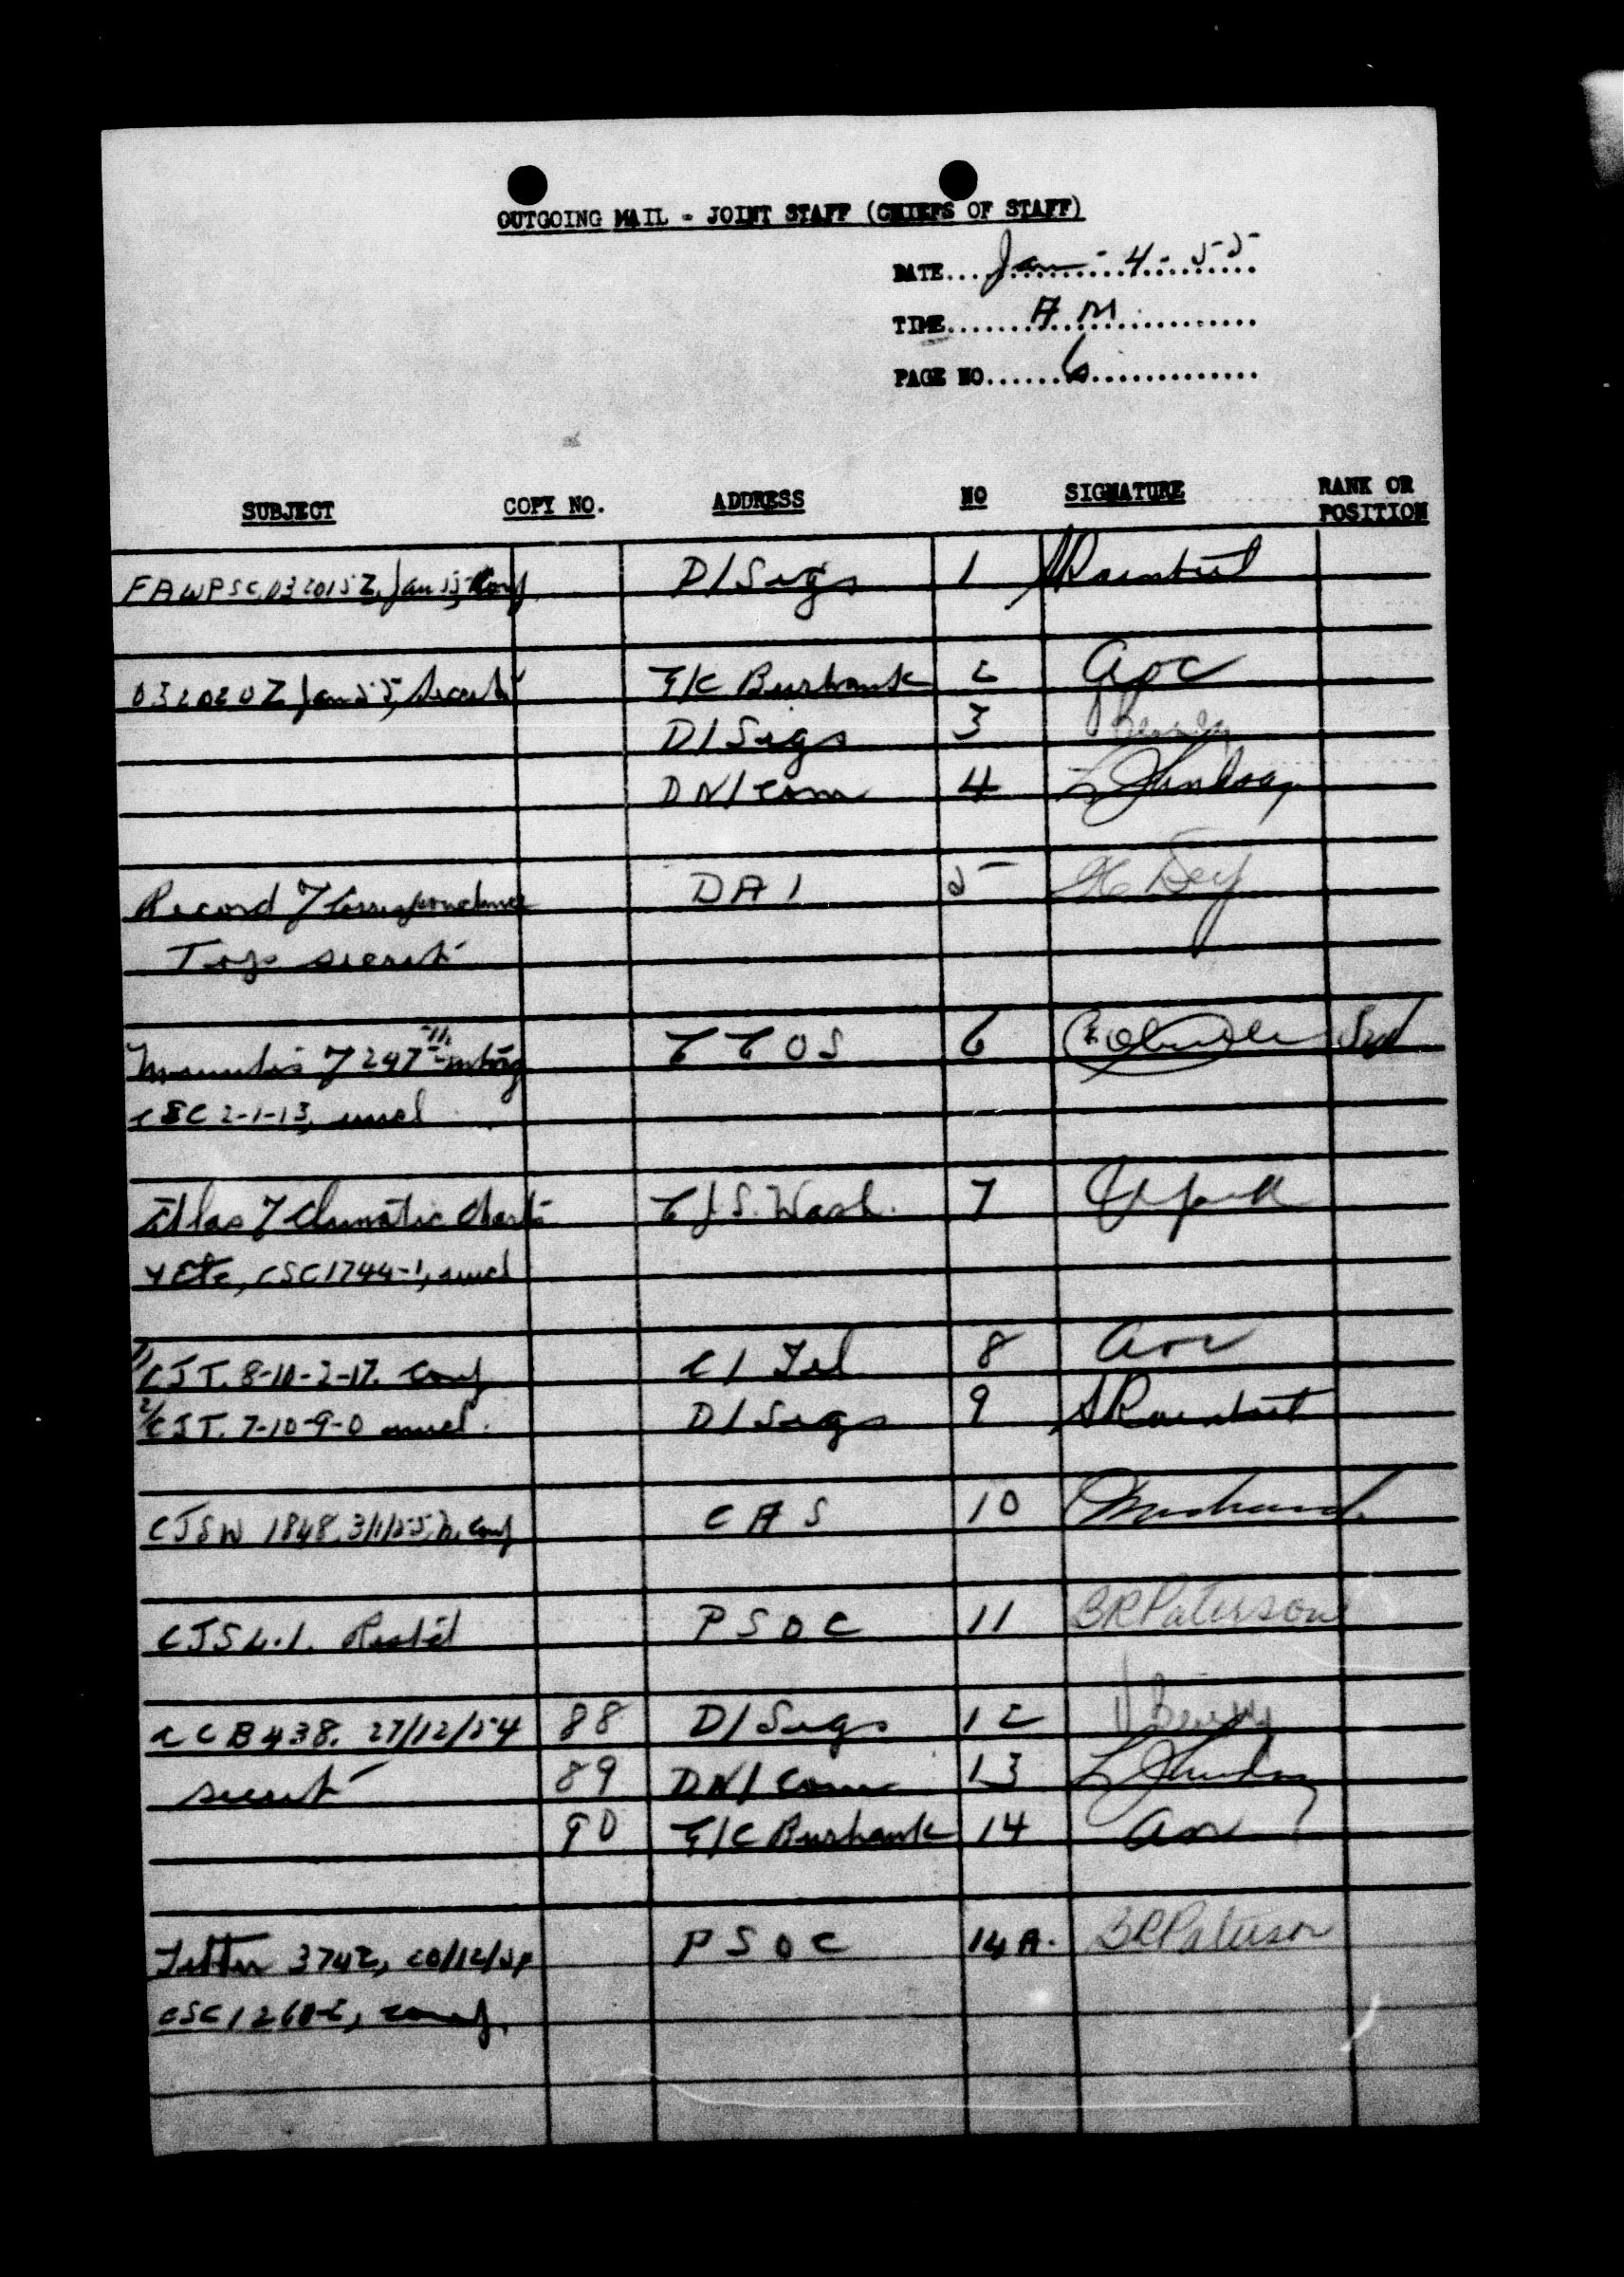 OUTGOING MAIL - JOINT STAFF (CHIEFS OF STAFF)
DATE.... Jan - 4 - 55
TIME.... A M
PAGE NO.... 6
SUBJECT COPY NO. ADDRESS NO SIGNATURE RANK OR POSITION
FAWPSC, 032015Z, Jan 55, Conf D/Sigs 1
032020Z Jan 55, Secret G/C Burbank 2
D/Sigs 3
DN/Com 4
Record of Correspondence DAI 5 Dey
Top secret
Minutes of 247th mting CCOS 6
CSC 2-1-13, uncl
Atlas of Climatic Charts CJS. Wash. 7
of Etc, CSC 1744-1, uncl
1/ CJT. 8-10-2-17. Conf C/Tel 8
2/ CJT. 7-10-9-0 uncl. D/Sigs 9
CJSW 1848, 3/1/55, Conf CAS 10
CJSL.1. Rest'd PSOC 11 BR Paterson
CCB 438. 27/12/54 88 D/Sigs 12
secret 89 DN/Com 13
90 G/C Burbank 14
Letter 3742, 20/12/54 PSOC 14A. BR Paterson
CSC 1260-2, conf.